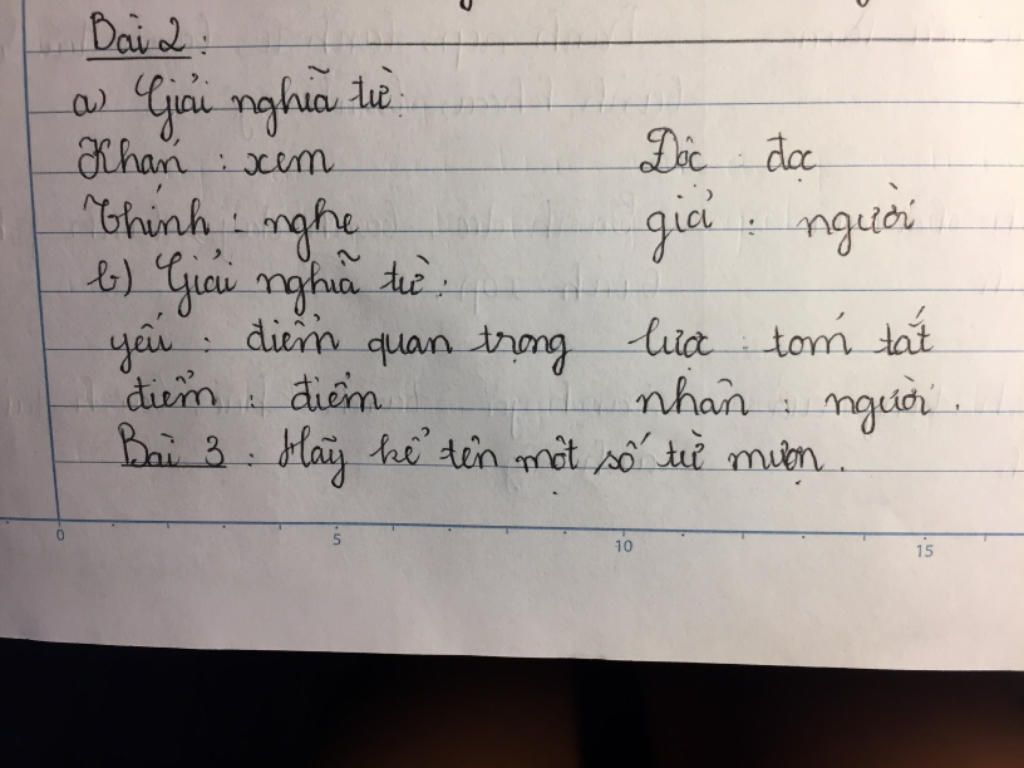 Bài 2 :
a) Giải nghĩa từ :
Khán : xem Độc : đọc
Thính : nghe giả : người
b) Giải nghĩa từ :
yếu : điểm quan trọng lược : tóm tắt
điểm : điểm nhân : người.
Bài 3 : Hãy kể tên một số từ mượn.
0 5 10 15